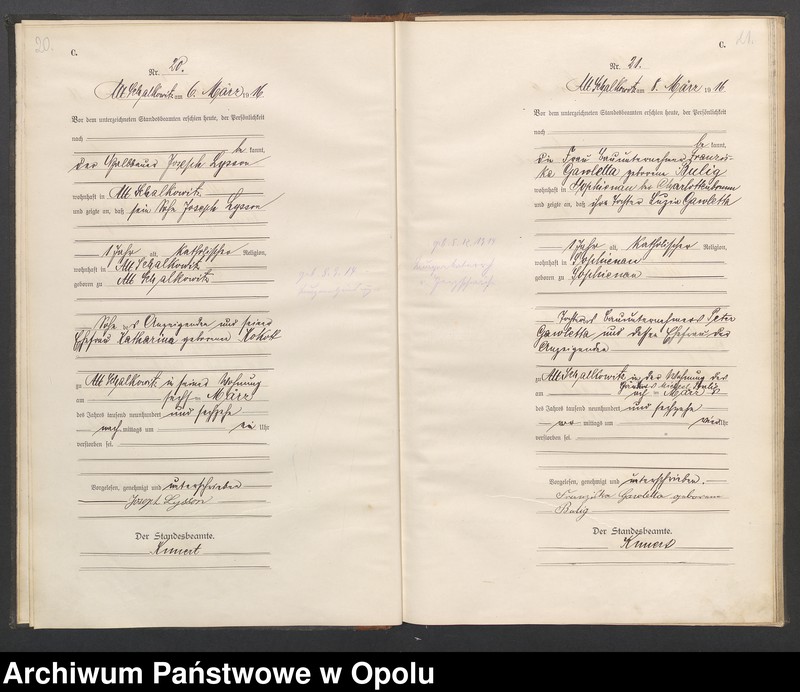 20.
C.
Nr. 20.
Alt Schalkowitz am 6. März 1916.
Vor dem unterzeichneten Standesbeamten erschien heute, der Persönlichkeit
nach
be kannt,
der Joseph Lysson
wohnhaft in Alt Schalkowitz
und zeigte an, daß sein Sohn Joseph Lysson
1 Jahr alt, katholischer Religion,
wohnhaft in Alt Schalkowitz
geboren zu Alt Schalkowitz
Sohn des Anzeigenden und seiner
Ehefrau Katharina geborenen Kokott
zu Alt Schalkowitz in seiner Wohnung
am sechsten März
des Jahres tausend neunhundert und sechzehn
nach mittags um ein Uhr
verstorben sei.
Vorgelesen, genehmigt und unterschrieben
Joseph Lysson
Der Standesbeamte.
21.
C.
Nr. 21.
Alt Schalkowitz am 8. März 1916.
Vor dem unterzeichneten Standesbeamten erschien heute, der Persönlichkeit
nach
be kannt,
die Frau Bauunternehmer Franzis-
ka Gawletta geborene
wohnhaft in Sophienau bei Charlottenbrunn
und zeigte an, daß ihre Tochter Luzia Gawletta
1 Jahr alt, katholischer Religion,
wohnhaft in Sophienau
geboren zu Sophienau
Tochter des Bauunternehmers Peter
Gawletta und dessen Ehefrau der
Anzeigenden
zu Alt Schalkowitz in der Wohnung des
am März
des Jahres tausend neunhundert und sechzehn
vor mittags um vier Uhr
verstorben sei.
Vorgelesen, genehmigt und unterschrieben.
Franziska Gawletta geborene
Der Standesbeamte.
Archiwum Państwowe w Opolu